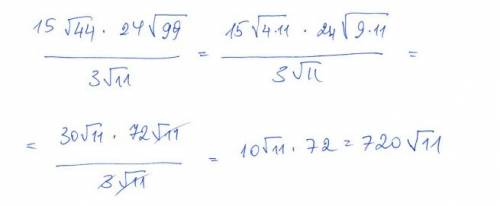 15√44 · 24√99 / 3√11 = 15√4·11 · 24√9·11 / 3√11 =
= 30√11 · 72√11 / 3√11 = 10√11 · 72 = 720√11